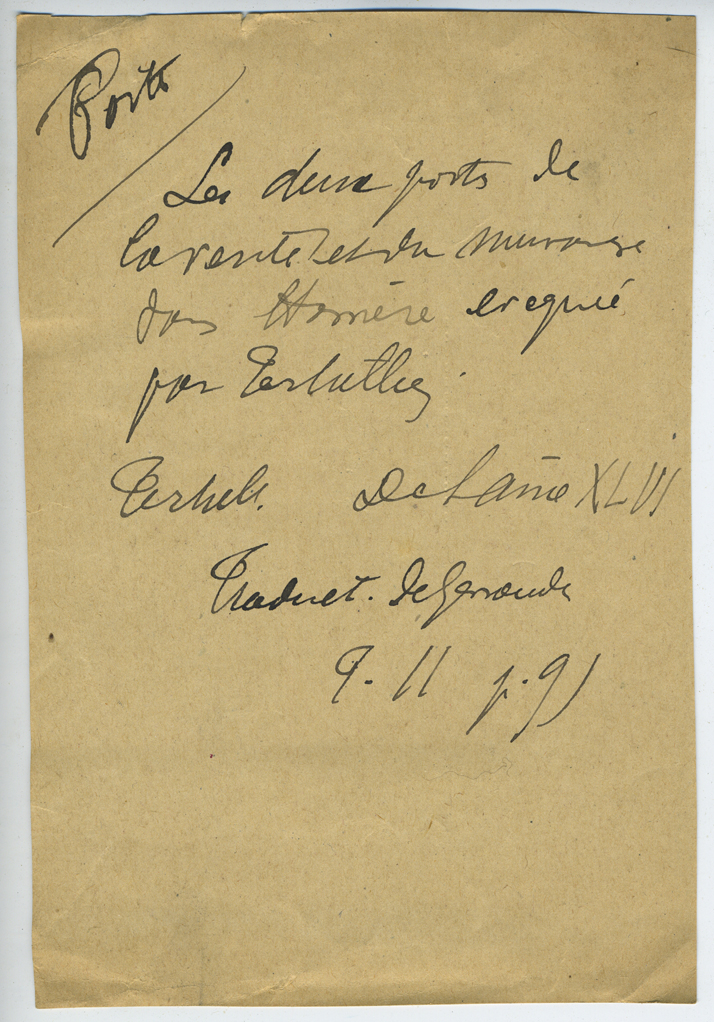 Porte
Les deux portes de
la vérité et du mensonge
dans Homère évoqué
par Tertullien.
Tertull. De l'âme XLVI
Traduct. de Genoude
T. II p. 91